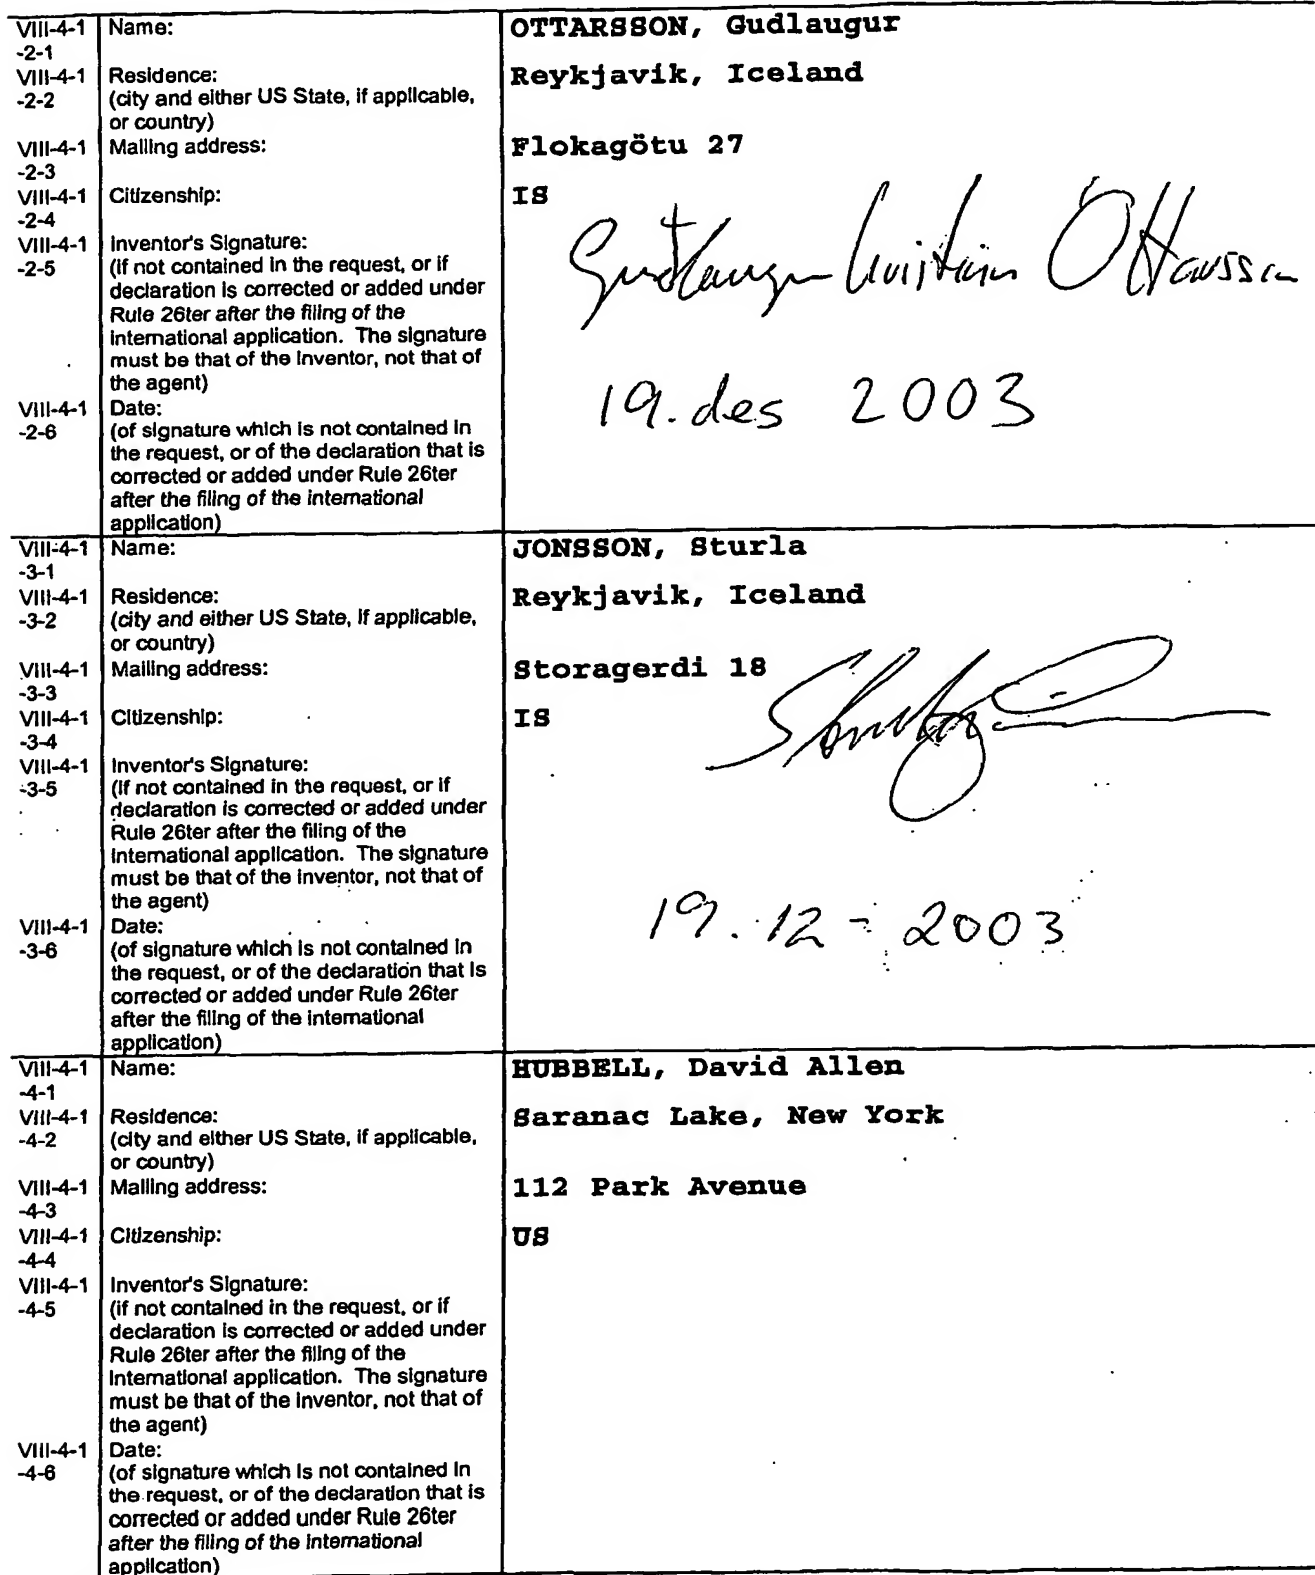 VIII-4-1 Name: OTTARSSON, Gudlaugur
-2-1
VIII-4-1 Residence: Reykjavik, Iceland
-2-2 (city and either US State, if applicable,
or country)
VIII-4-1 Mailing address: Flokagötu 27
-2-3
VIII-4-1 Citizenship: IS
-2-4
VIII-4-1 Inventor's Signature:
-2-5 (if not contained in the request, or if
declaration is corrected or added under
Rule 26ter after the filing of the
international application. The signature
must be that of the inventor, not that of
the agent)
VIII-4-1 Date: 19. des 2003
-2-6 (of signature which is not contained in
the request, or of the declaration that is
corrected or added under Rule 26ter
after the filing of the international
application)
VIII-4-1 Name: JONSSON, Sturla
-3-1
VIII-4-1 Residence: Reykjavik, Iceland
-3-2 (city and either US State, if applicable,
or country)
VIII-4-1 Mailing address: Storagerdi 18
-3-3
VIII-4-1 Citizenship: IS
-3-4
VIII-4-1 Inventor's Signature:
-3-5 (if not contained in the request, or if
declaration is corrected or added under
Rule 26ter after the filing of the
international application. The signature
must be that of the inventor, not that of
the agent)
VIII-4-1 Date: 19.12-2003
-3-6 (of signature which is not contained in
the request, or of the declaration that is
corrected or added under Rule 26ter
after the filing of the international
application)
VIII-4-1 Name: HUBBELL, David Allen
-4-1
VIII-4-1 Residence: Saranac Lake, New York
-4-2 (city and either US State, if applicable,
or country)
VIII-4-1 Mailing address: 112 Park Avenue
-4-3
VIII-4-1 Citizenship: US
-4-4
VIII-4-1 Inventor's Signature:
-4-5 (if not contained in the request, or if
declaration is corrected or added under
Rule 26ter after the filing of the
international application. The signature
must be that of the inventor, not that of
the agent)
VIII-4-1 Date:
-4-6 (of signature which is not contained in
the request, or of the declaration that is
corrected or added under Rule 26ter
after the filing of the international
application)